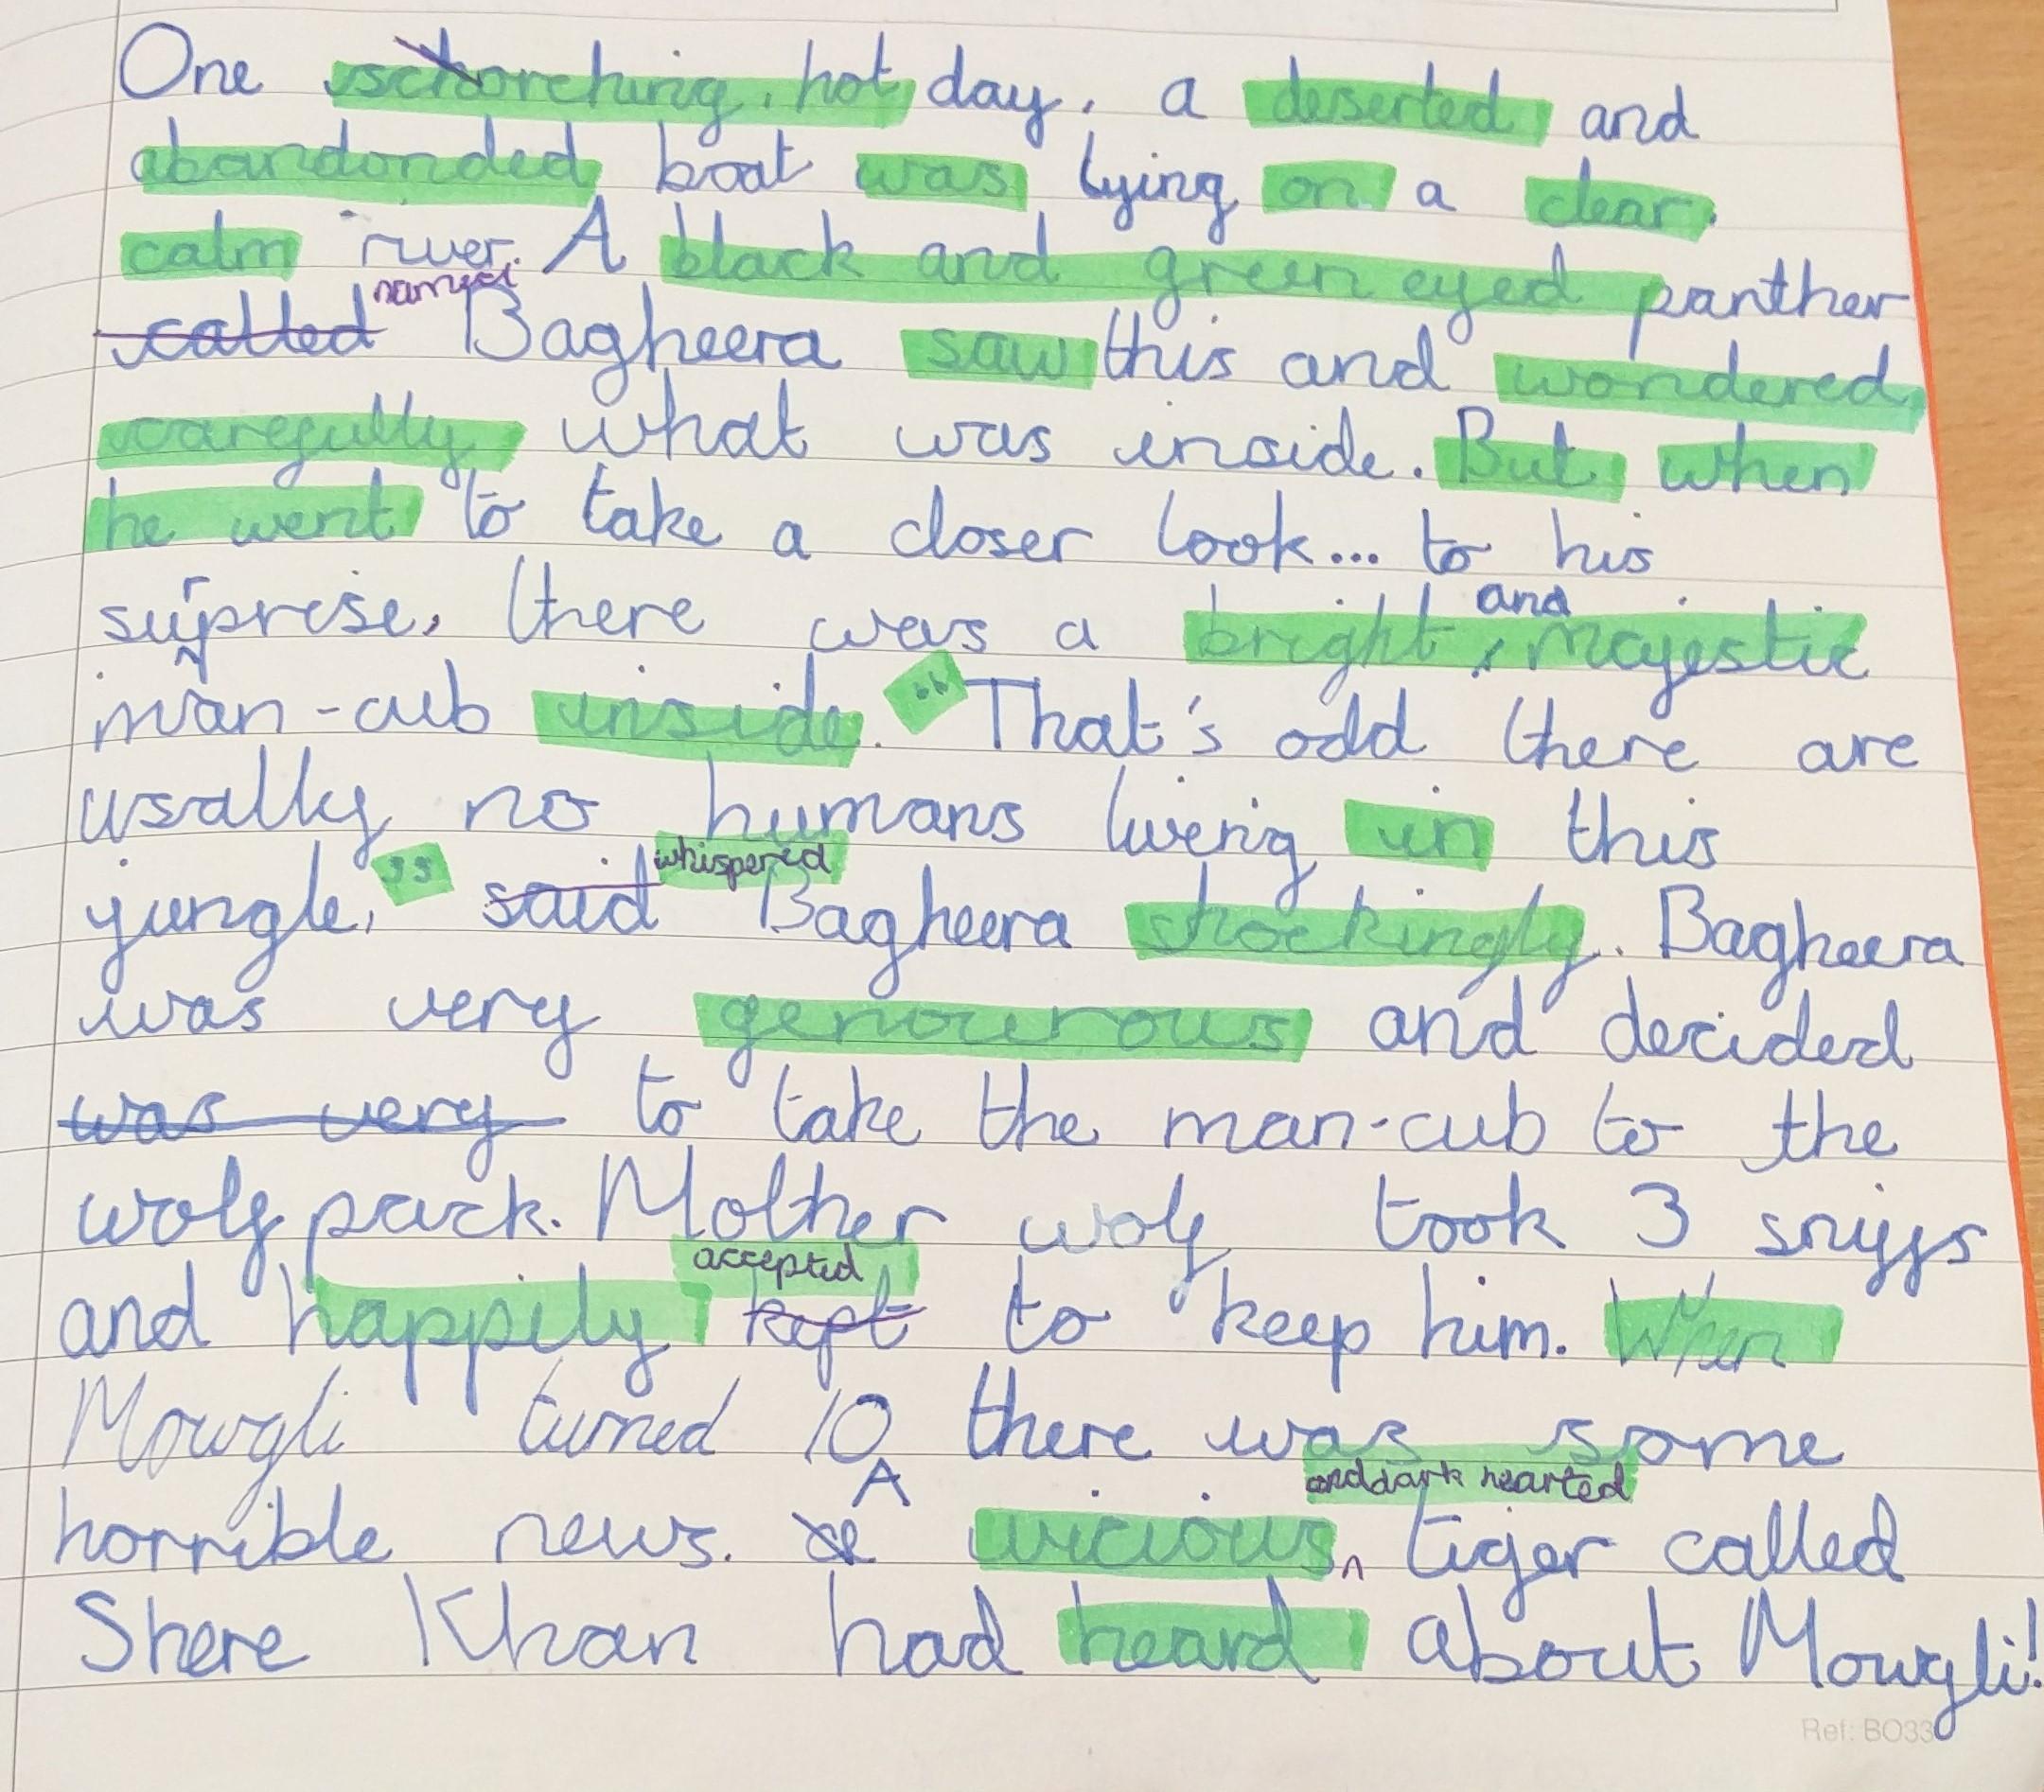 One schorching, hot day, a deserted and
abandonded boat was lying on a clear,
calm river. A black and green eyed panther
called named Bagheera saw this and wondered
carefully what was inside. But when
he went to take a closer look... to his
surprise, there was a bright and majestic
man-cub inside. "That's odd there are
usally no humans living in this
jungle," said whispered Bagheera shockingly. Bagheera
was very genourous and decided
was very to take the man-cub to the
wolf pack. Mother wolf took 3 sniffs
and happily kept accepted to keep him. When
Mowgli turned 10 there was some
horrible news. A vicious and dark hearted tiger called
Shere Khan had heard about Mowgli!
Ref: BO33